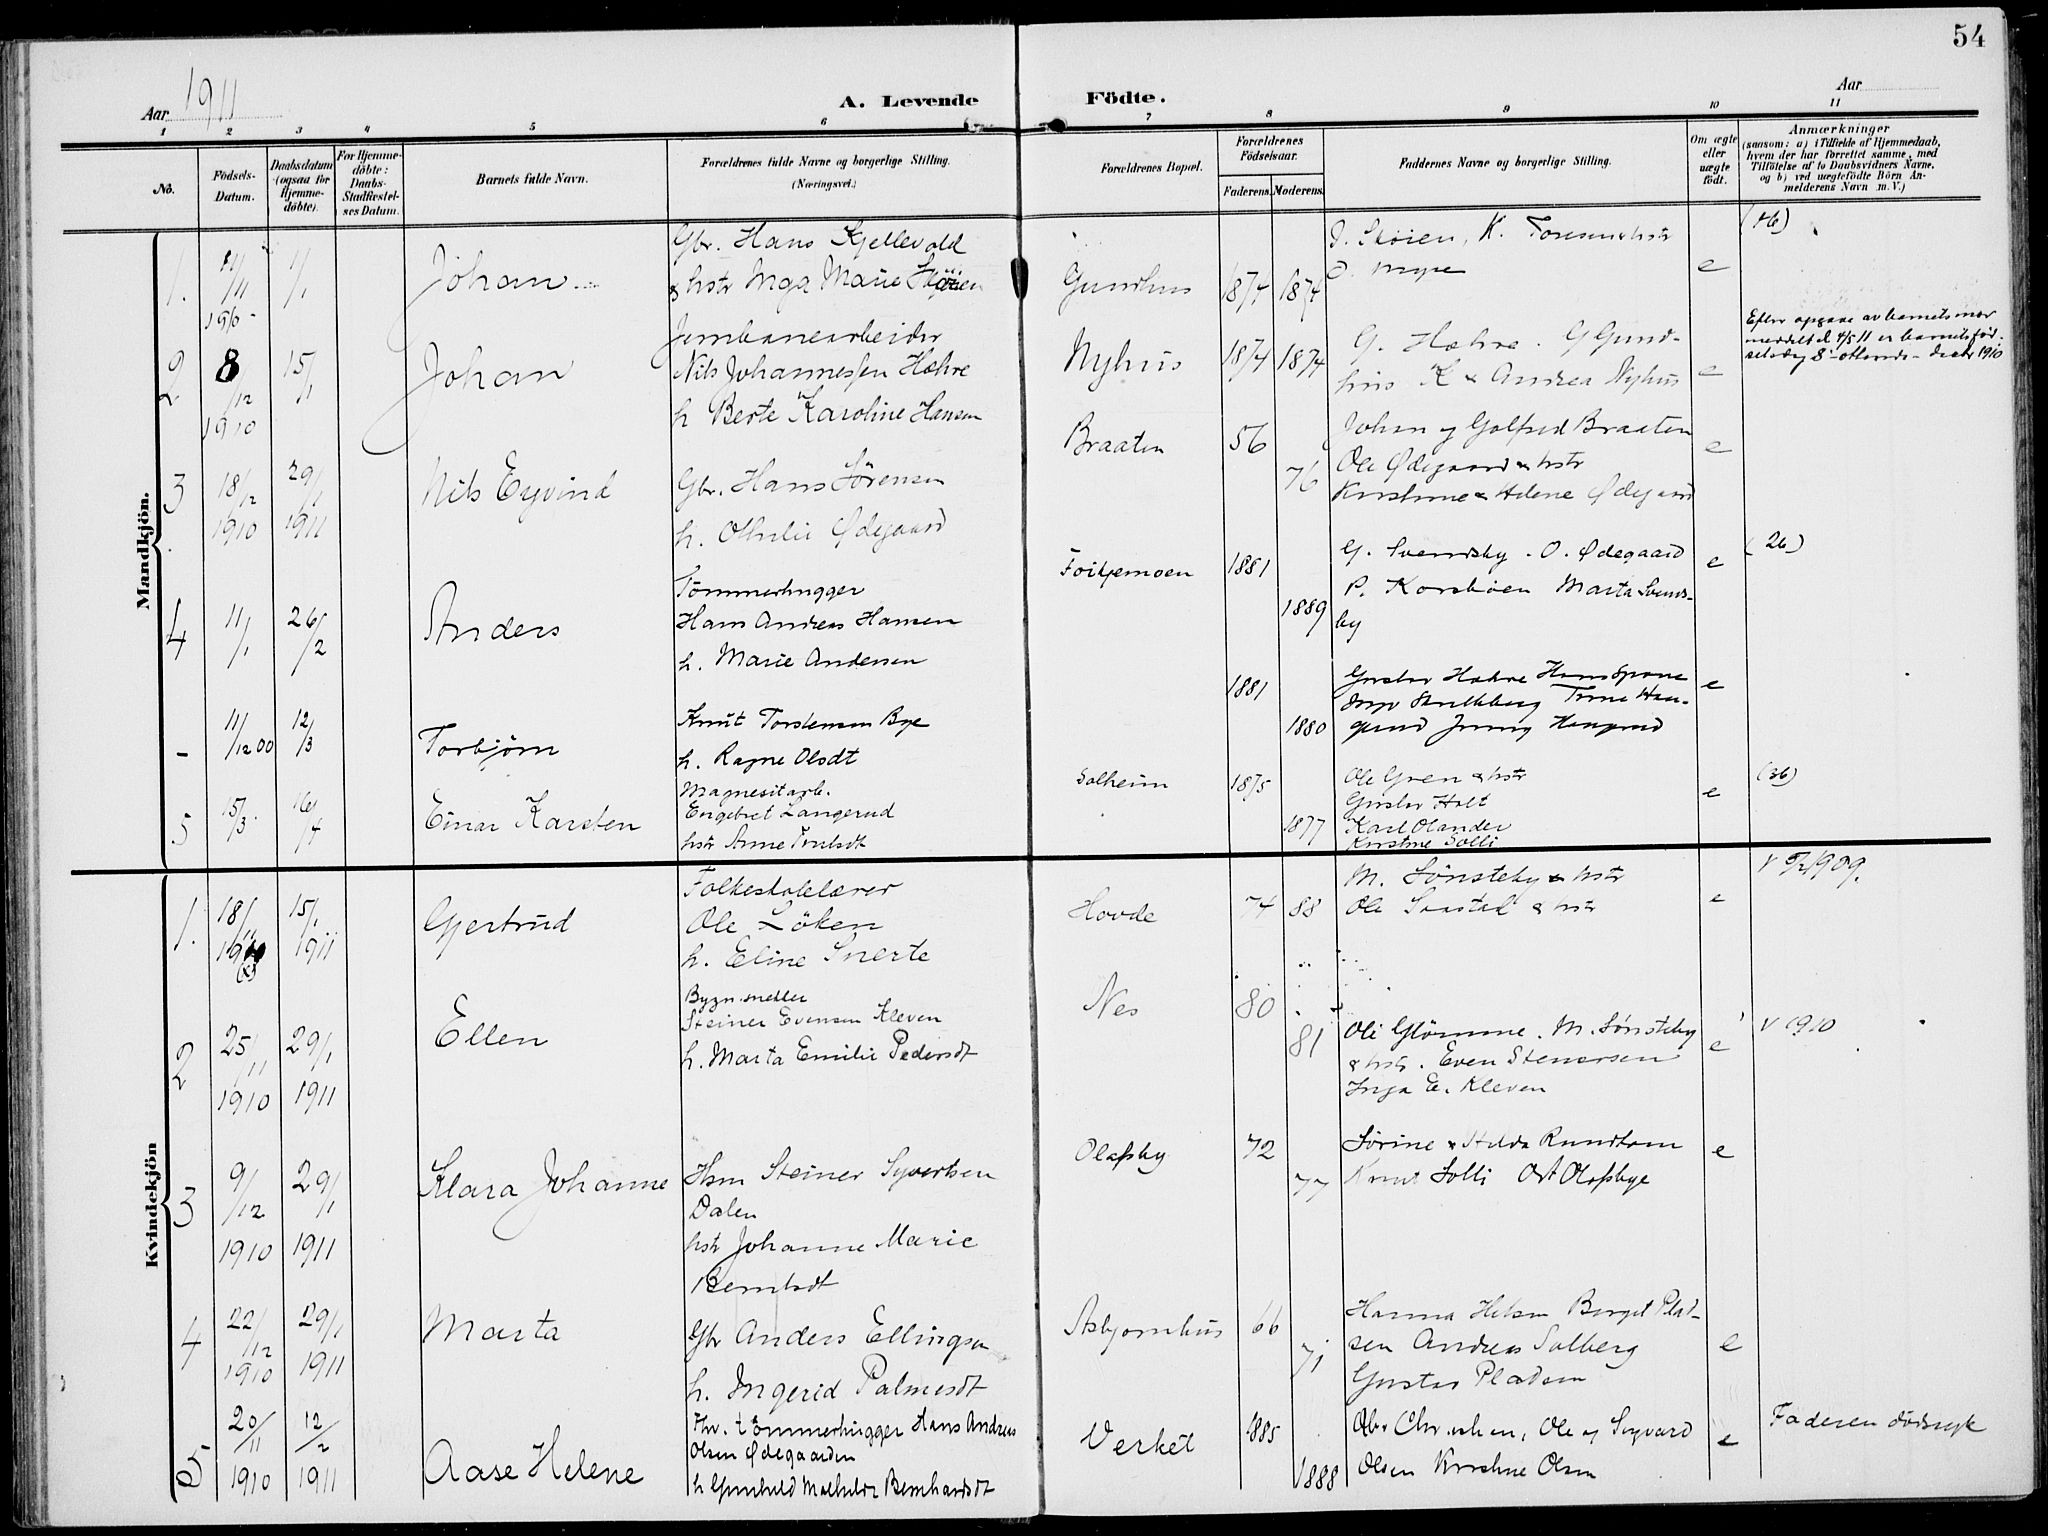 54
Aar 1911
A. Levende Födte.
Aar
1 2 3 4 5 6 7 8 9 10 11
No.
Födsels-Datum.
Daabsdatum (ogsaa for Hjemme-döbte).
For Hjemme-döbte: Daabs-Stadfæstel-ses Datum.
Barnets fulde Navn.
Forældrenes fulde Navne og borgerlige Stilling.
(Næringsvei.)
Forældrenes Bopæl.
Forældrenes Födselsaar.
Faderens. Moderens.
Faddernes Navne og borgerlige Stilling.
Om ægte eller uægte födt.
Anmærkninger
(saasom: a) i Tilfælde af Hjemmedaab, hvem der har forrettet samme, med Tilföielse af to Daabsvidners Navne, og b) ved uægtefödte Börn An-melderens Navn m. V.)
Mandkjön.
1. 11/11 1910 1/1 Johan
Gbr. Hans Kjellevold
& hstr Inga Marie Skøien
Gundhus 1874 1874
J. Skøien, K.
e
2 8/12 1910 15/1 Johan
Jernbanearbeider
Nils Johannessen Hæhre
h Berte Karoline Hansen
Nyhus 1874 1874
G. Hæhre. G Gund-
hus K & Andrea Nyhus
e
Efter opgave av barnets mor
meddelt d. 4/5 11 er barnets fød-
selsdag 8de- ottende - decbr 1910
3 18/12 1910 29/1 1911 Nils Eyvind
Gbr. Hans Sørensen
h. Othilie Ødegaard
Braaten 56 76
Johan og Golfred Braaten
Ole Ødegaard & hstr
Kristine & Helene Ødegaard
e
4 11/1 26/2 Anders
Tömmerhugger
Hans Andreas Hansen
h. Marie Andersen
1881 1889
G. Svendsby. O. Ødegaard
P. Korsbøen Marta Svends-
by
e (26)
- 11/12 00 12/3 Torbjörn
Knut Torstensen Bye
h. Ragne Olsdt
1881 1880
Gustav Hæhre
e
5 15/3 16/4 Einar Karsten
Magnesitarb.
Engebret Langerud
hstr Anne Trulsdt
Solheim 1875 1877
Ole Gren & hstr
Gustav Holt
Karl Olander
Kirstine Solli
e (36)
Kvindekjön
1. 18/11 15/1 1911 Gjertrud
Folkeskolelærer
Ole Löken
h. Eline Snerte
Hovde 74 88
M. Sönsteby & hstr
Ole Saastad & hstr
e
2 25/11 1910 29/1 1911 Ellen
Steiner Evensen Kleven
h. Marta Emilie Pedersdt
Nes 80 81
Ole Glömme. M. Sönsteby
& hstr. Even Stenersen
Inga E. Kleven
e v 1910
3 9/12 1910 29/1 1911 Klara Johanne
Hsm Steiner Syvertsen
Dalen
hstr Johanne Marie
Berntsdt
Olafsby 72 77
Sörine & Hilda Rundtom
Knut Solli Olafsbye
e
4 22/12 1910 29/1 1911 Marta
Gbr Anders Ellingsen
h. Ingerid Palmesdt
Asbjørnhus 66 71
Hanna Helsen Berget Plad-
sen Andreas Solberg
Gustav Pladsen
e
5 20/11 1910 12/2 1911 Aase Helene
Fhv. tömmerhugger Hans Andreas
Olsen Ødegaarden
h Gunhild Mathilde Bernhardsdt
Verket 1885 1888
Ole og Sigvard
Olsen Kristine Olsen
e Faderen dødssyk